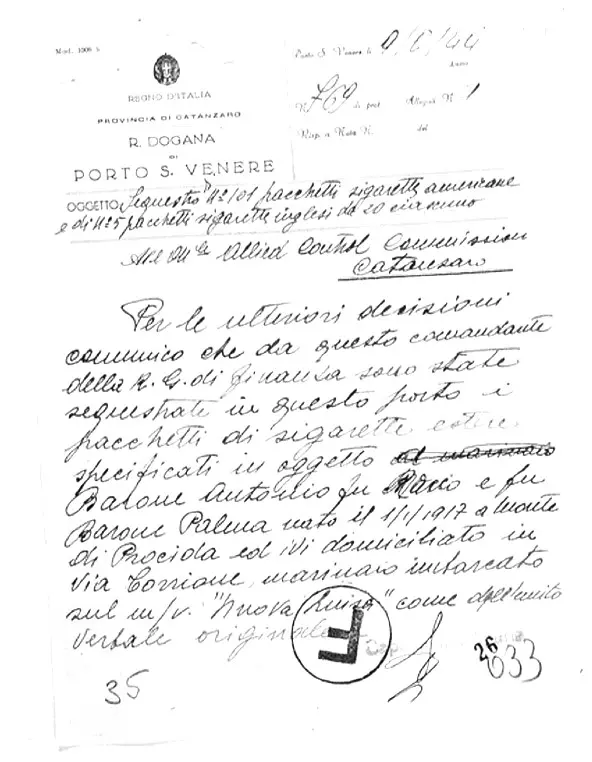 Mod. 1008 b
Porto S. Venere li 9/6/44
Anno
REGNO D'ITALIA
PROVINCIA DI CATANZARO
N. 769 di prot. Allegati N. 1
R. DOGANA
DI
Risp. a Nota N. del
PORTO S. VENERE
OGGETTO Sequestro Nº 101 pacchetti sigarette americane
e di Nº 5 pacchetti sigarette inglesi da 20 ciascuno
Allied Control Commission
Catanzaro
Per le ulteriori decisioni
comunico che da questo comandante
della R. G. di finanza sono state
sequestrate in questo porto i
pacchetti di sigarette estere
specificati in oggetto al marinaio
Barone Antonio fu e fu
Barone Palma nato il 1/1/1917 a Monte
di Procida ed ivi domiciliato in
via Torrione, marinaio imbarcato
sul m/v. "Nuova Luisa" come
verbale originale
F
35
26
633